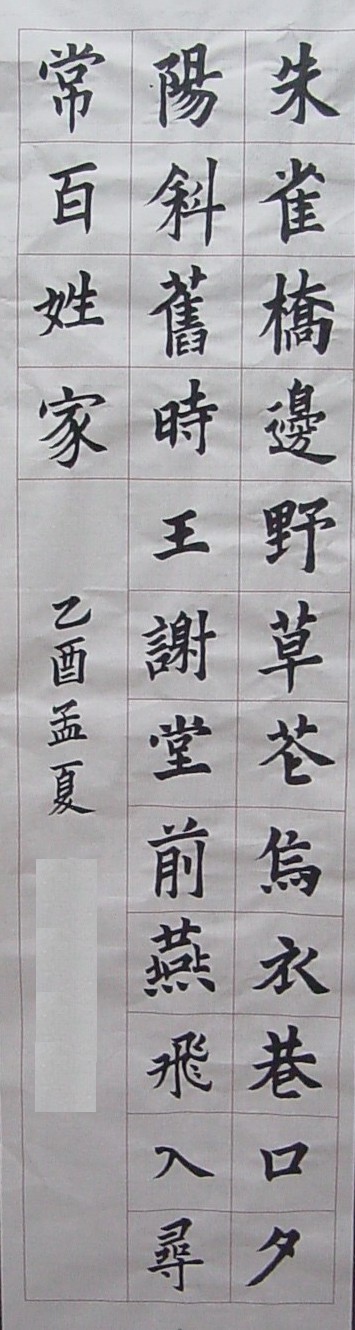 朱雀橋邊野草苍烏衣巷口夕
陽斜舊時王謝堂前燕飛入尋
常百姓家
乙酉孟夏